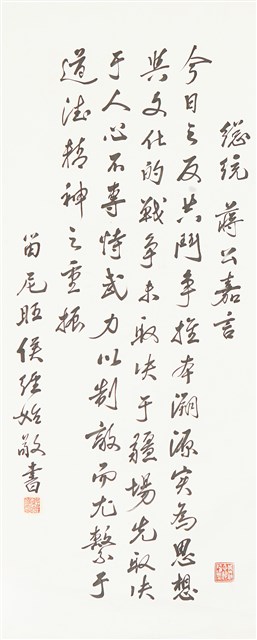 總統 蔣公嘉言
今日之反共鬥爭推本溯源實為思想
與文化的戰爭未取決于疆場先取決
于人心不專恃武力以制敵而尤繫于
道德精神之重振
侯經始敬書